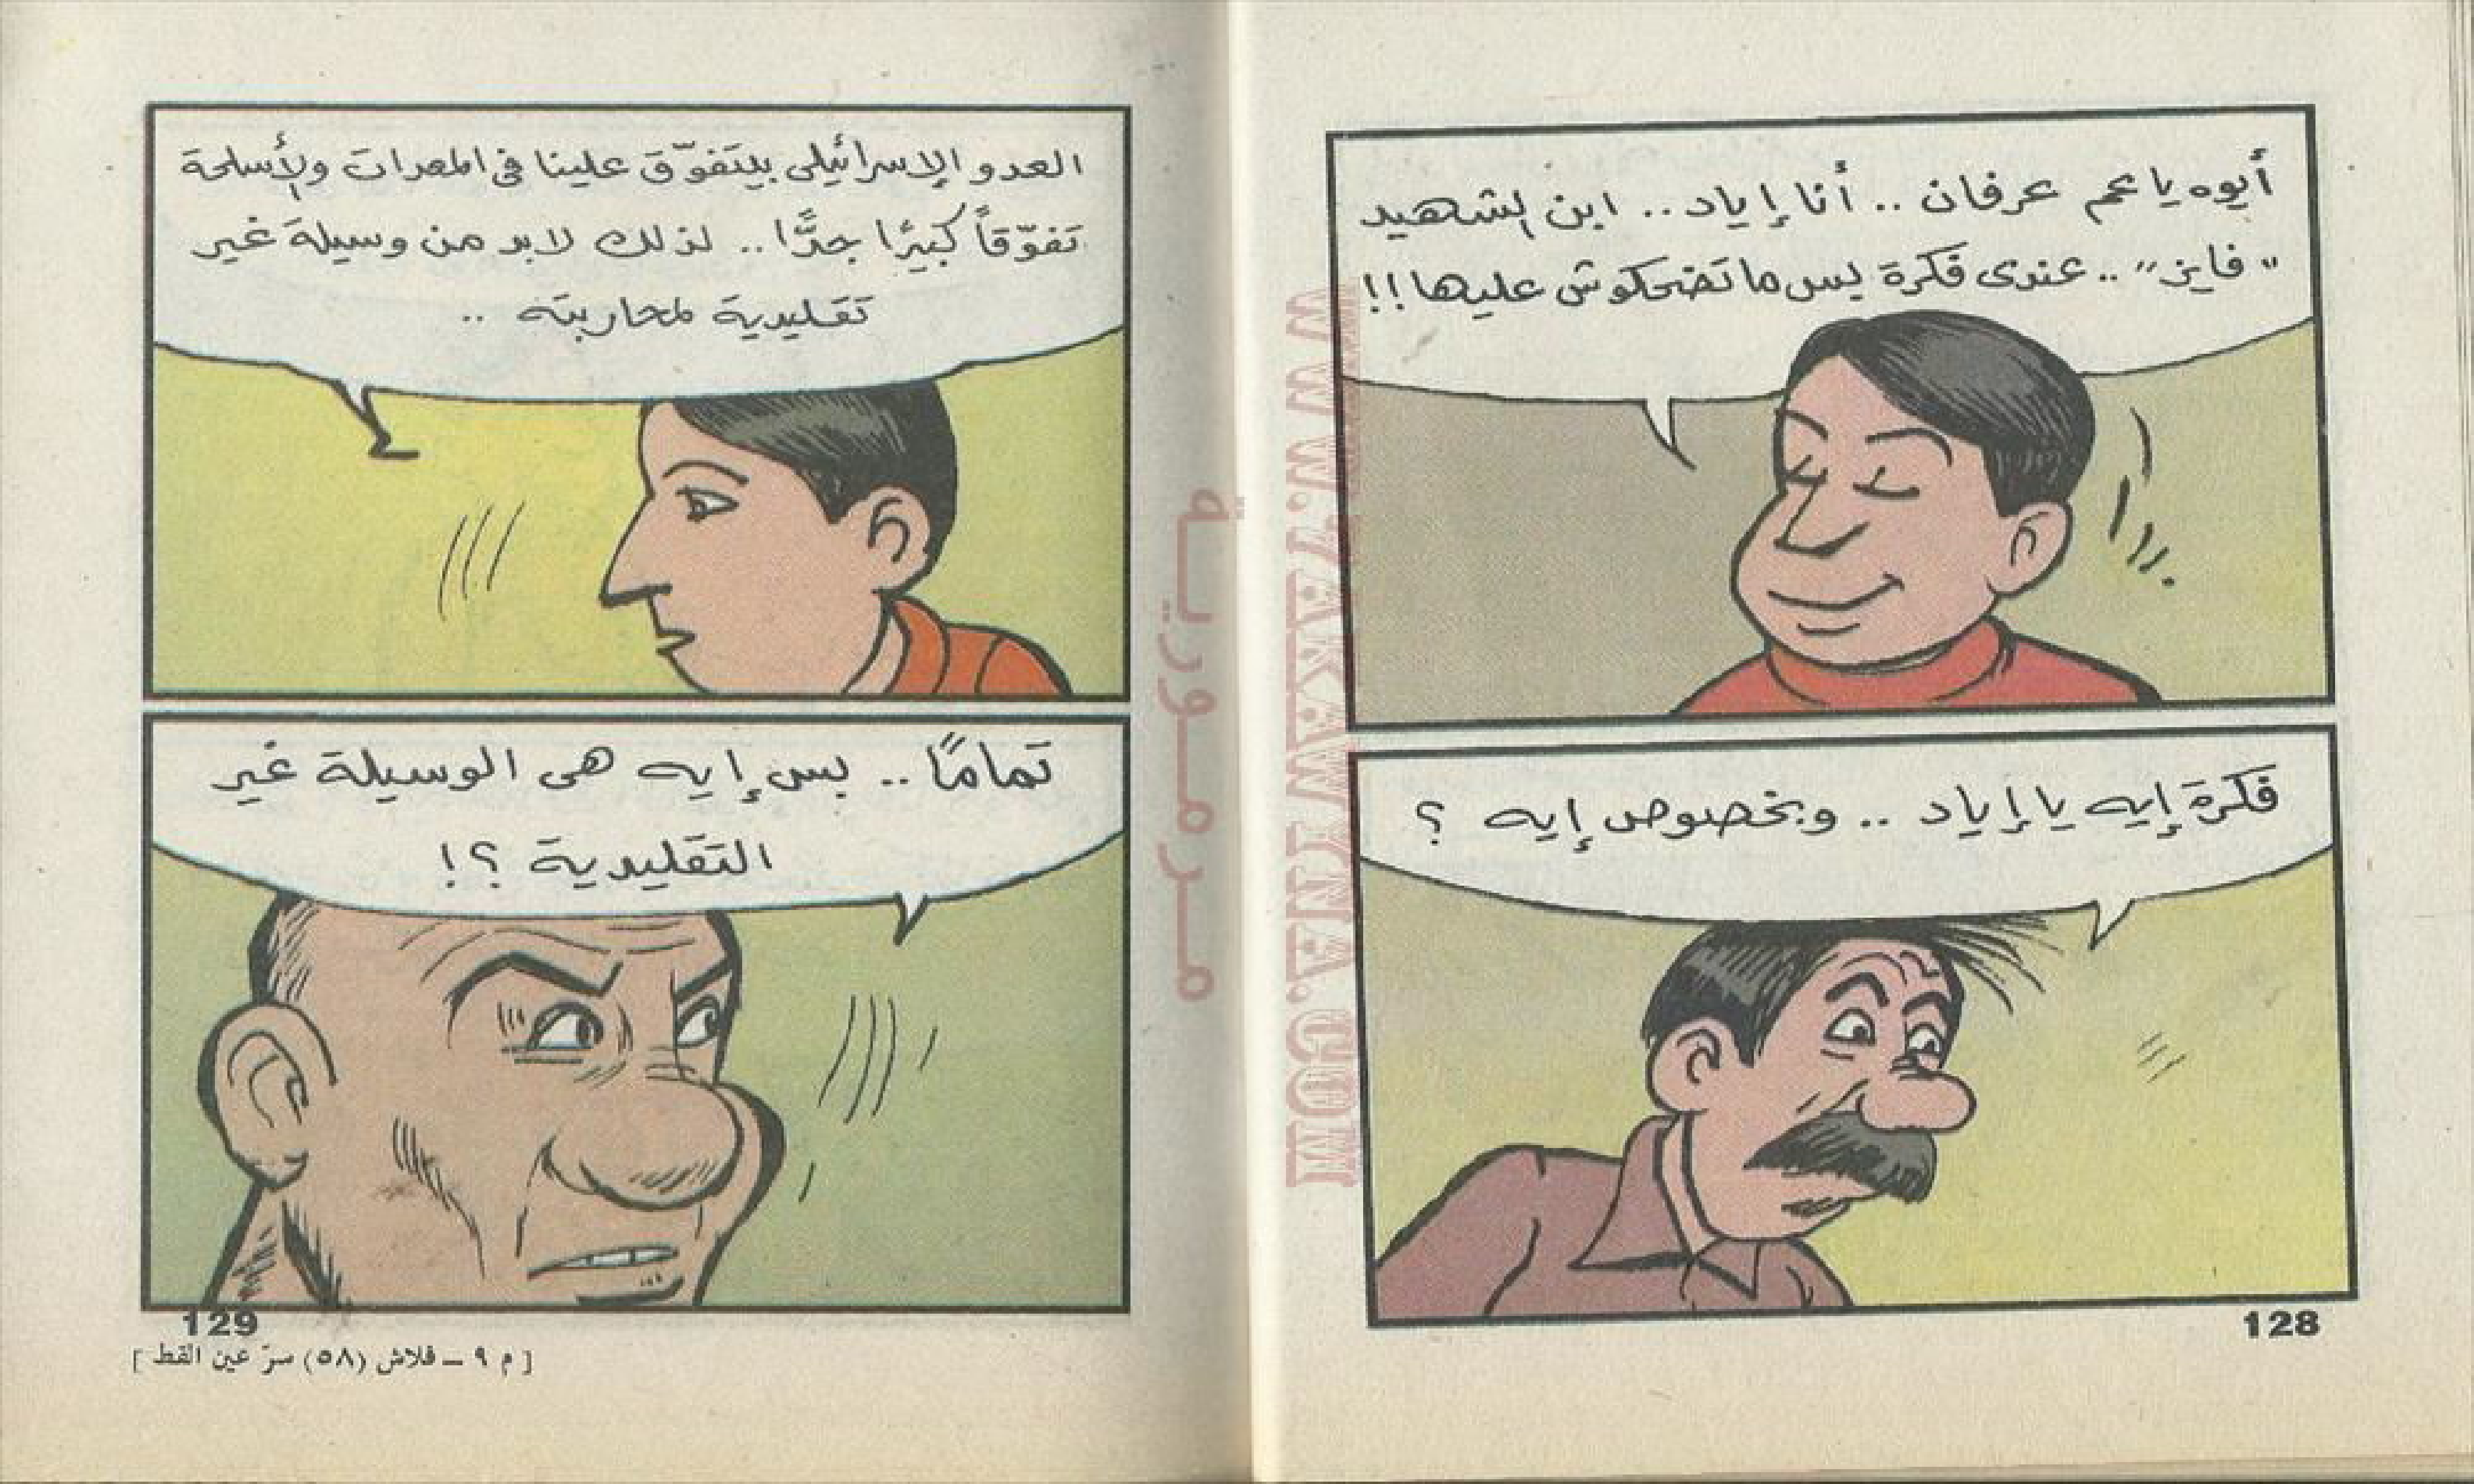 أيوه يا عم عرفان .. أنا إياد .. ابن الشهيد
"فايز" .. عندى فكرة بس ما تضحكوش عليها !!
فكرة إيه يا إياد .. وبخصوص إيه ؟
128
العدو الإسرائيلى بيتفوّق علينا فى المعدات والأسلحة
تفوّقاً كبيرًا جدًّا .. لذلك لابد من وسيلة غير
تقليدية لمحاربته ..
تمامًا .. بس إيه هى الوسيلة غير
التقليدية ؟!
129
[ م ٩ – فلاش (٥٨) سرّ عين القط ]
مرمورية